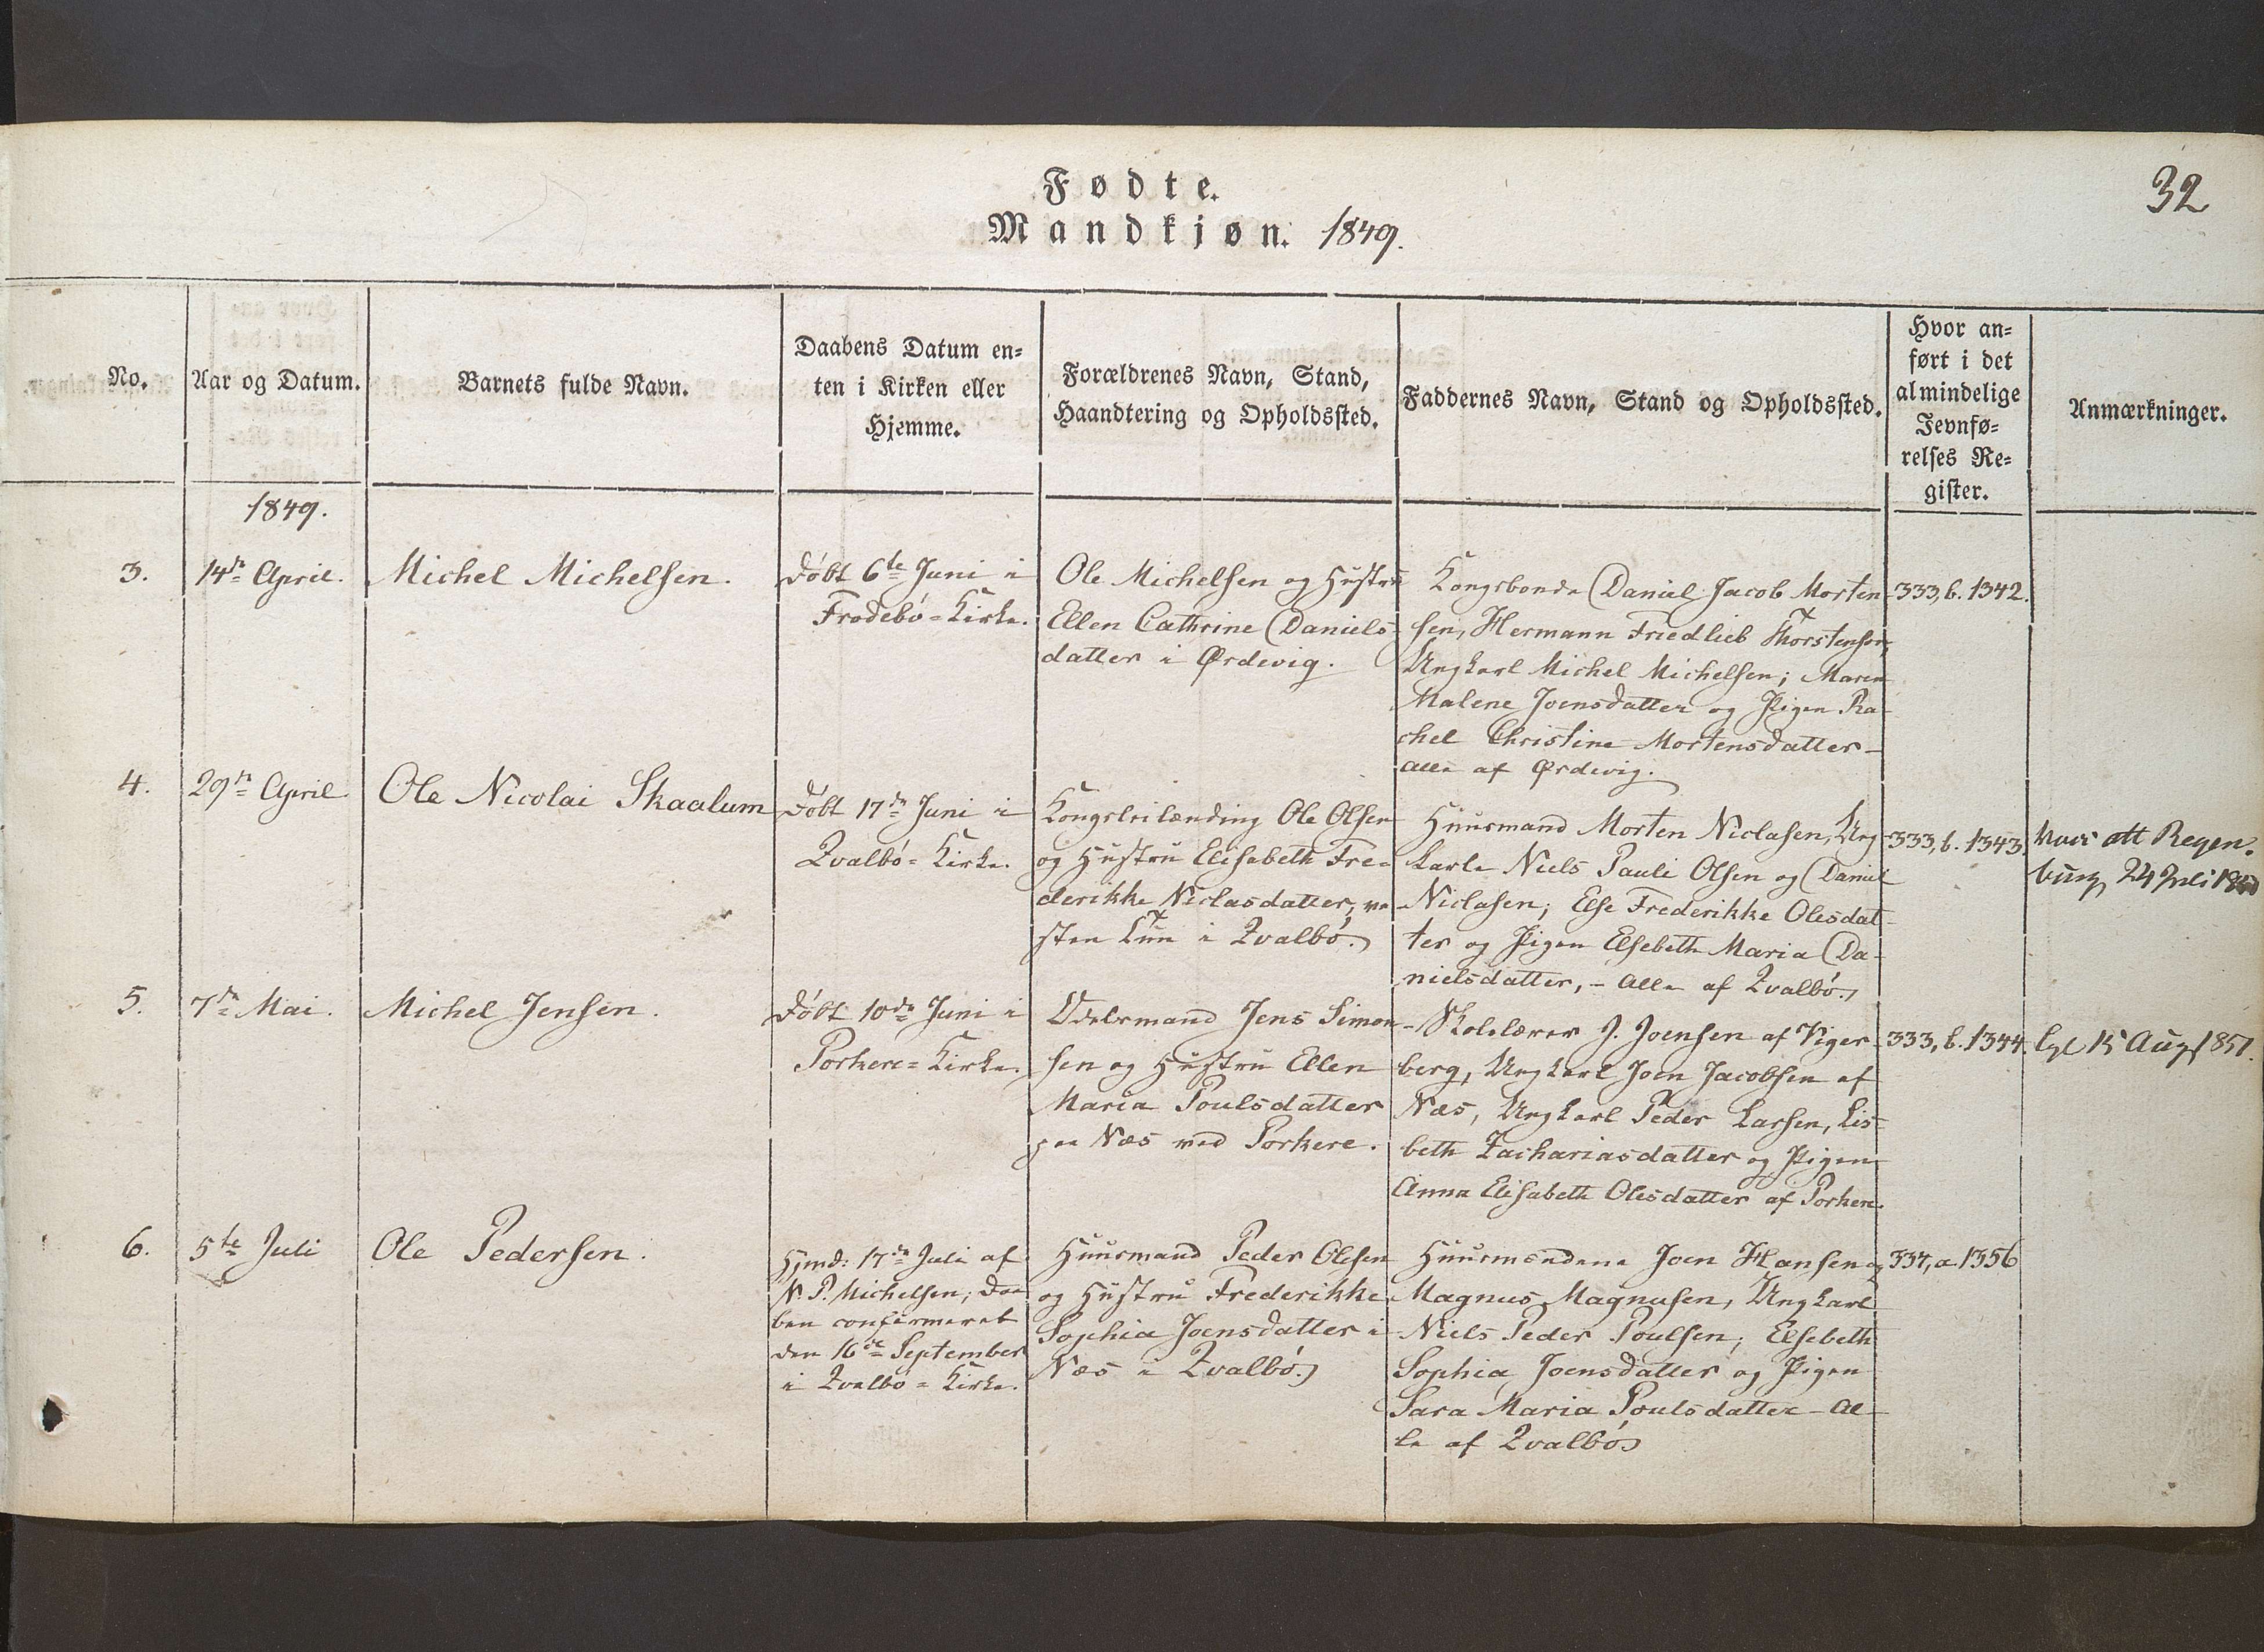 32
Fødte.
Mandkjøn. 1849.
No.
Aar og Datum.
Barnets fulde Navn.
Daabens Datum en=
ten i Kirken eller
Hjemme.
Forældrenes Navn, Stand,
Haandtering og Opholdssted.
Faddernes Navn, Stand og Opholdssted.
Hvor an=
ført i det
almindelige
Jevnfø=
relses Re=
gister.
Anmærkninger.
1849.
3.
14de April.
Michel Michelsen.
Døbt 6te Juni i
Frodebø=Kirke.
Ole Michelsen og Hustru
Ellen Cathrine Daniels
datter i Ørdevig.
Kongsbonde Daniel Jacob Morten
sen, Hermann Friedlieb Thorstensen,
Ungkarl Michel Michelsen; Maren
Malene Joensdatter og Pigen Ra-
chel Christine Mortensdatter –
alle af Ørdevig.
333, b. 1342.
4.
29de April
Ole Nicolai Skaalum
Døbt 17de Juni i
Qvalbø=Kirke.
Kongsleilænding Ole Olsen
og Hustru Elisabeth Fre=
derikke Niclasdatter,
i Qvalbø.
Huusmand Morten Niclasen, Ung
karle Niels Pauli Olsen og Daniel
Niclasen; Else Frederikke Olesdat-
ter og Pigen Elsebeth Maria Da-
nielsdatter, – alle af Qvalbø.
333, b. 1343.
att Regen.
burg 24 Juli
5.
7de Mai.
Michel Jensen.
Døbt 10de Juni i
Porkere=Kirke.
Odelsmand Jens Simon-
sen og Hustru Ellen
Maria Poulsdatter
paa Næs ved Porkere.
Skolelærer J. Joensen af Viger-
berg, Ungkarl Joen Jacobsen af
Næs, Ungkarl Peder Larsen, Lis-
beth Zachariasdatter og Pigen
Anna Elisabeth Olesdatter af Porkere.
333, b. 1344.
15 Aug 1851.
6.
5te Juli
Ole Pedersen.
Hjmd: 17de Juli af
N. P. Michelsen; Daa
ben confirmeret
den 16de September
i Qvalbø=Kirke.
Huusmand Peder Olesen
og Hustru Frederikke
Sophia Joensdatter i
Næs i Qvalbø.
Huusmændene Joen Hansen og
Magnus Magnusen, Ungkarl
Niels Peder Poulsen; Elsebeth
Sophia Joensdatter og Pigen
Sara Maria Poulsdatter – al-
le af Qvalbø
334, a. 1356